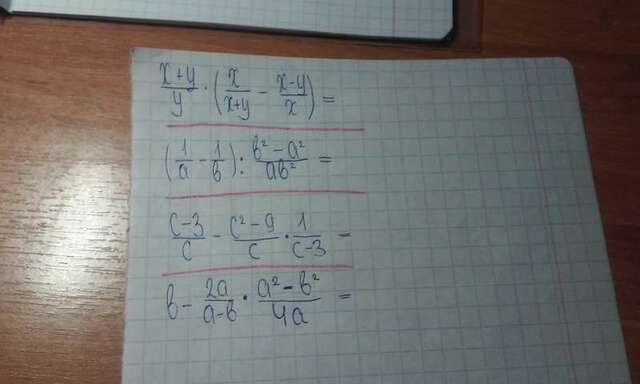 (x+y)/y · (x/(x+y) − (x−y)/x) =
(1/a − 1/b) : (b² − a²)/(ab²) =
(c−3)/c − (c²−9)/c · 1/(c−3) =
b − 2a/(a−b) · (a² − b²)/(4a) =